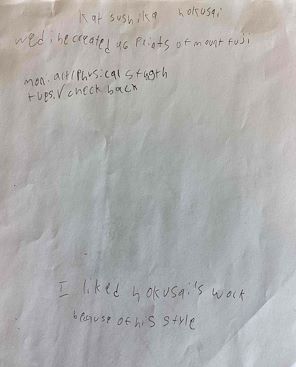 Kat sushika hokusai
wed: he created 46 Prints of mount fuji
mon: art/Physical strength
tues: √ check back
I liked hokusai's work
because of his style